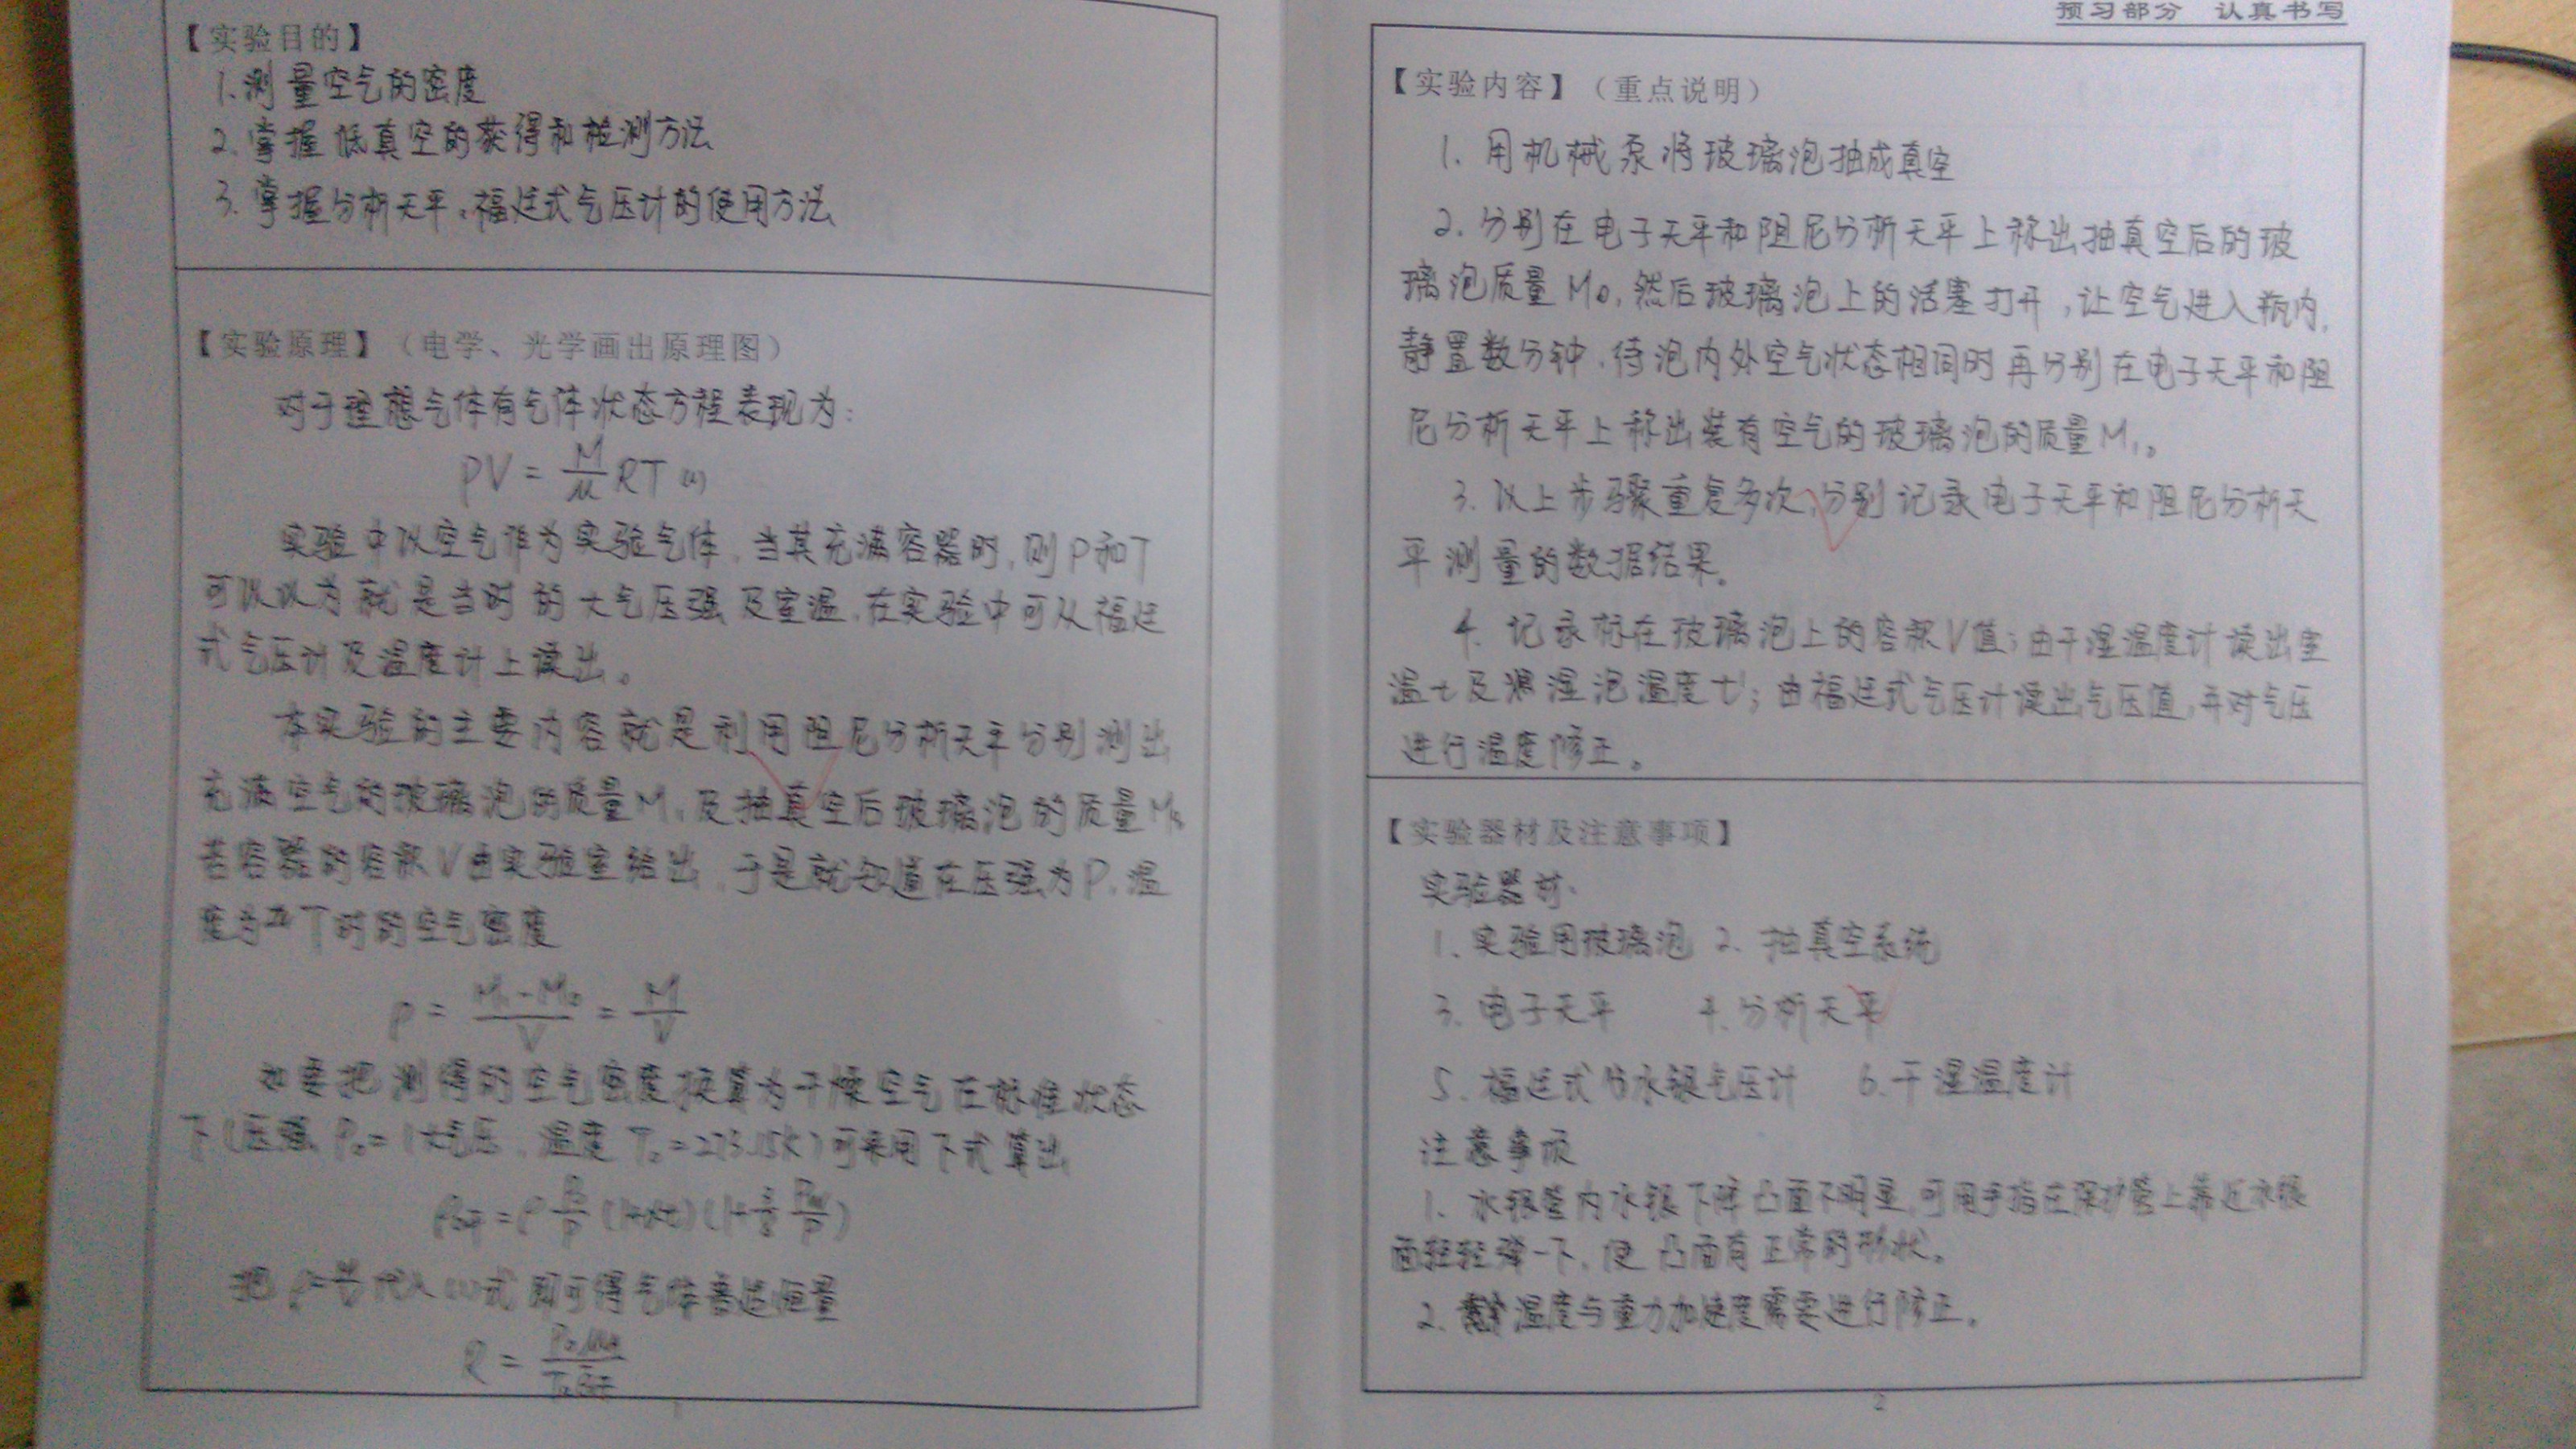 【实验目的】
1.测量空气的密度
2.掌握低真空的获得和检测方法
3.掌握分析天平、福廷式气压计的使用方法
【实验原理】（电学、光学画出原理图）
对于理想气体有气体状态方程表现为：
PV = M/μ RT (1)
实验中以空气作为实验气体，当其充满容器时，则P和T
可以认为就是当时的大气压强及室温，在实验中可从福廷
式气压计及温度计上读出。
本实验的主要内容就是利用阻尼分析天平分别测出
充满空气的玻璃泡的质量M₁及抽真空后玻璃泡的质量M₀
若容器的容积V由实验室给出，于是就知道在压强为P，温
度为T时的的空气密度
ρ = (M₁-M₀)/V = M/V
如要把测得的空气密度换算为干燥空气在标准状态
下(压强P₀=1大气压，温度T₀=273.15K)可采用下式算出
ρ = ρ P₀/P (1+αt)(1+3/8 Pw/P)
把 代入(1)式即可得气体普适恒量
R =
1
预习部分 认真书写
【实验内容】（重点说明）
1. 用机械泵将玻璃泡抽成真空
2. 分别在电子天平和阻尼分析天平上称出抽真空后的玻
璃泡质量M₀，然后玻璃泡上的活塞打开，让空气进入瓶内，
静置数分钟，待泡内外空气状态相同时再分别在电子天平和阻
尼分析天平上称出装有空气的玻璃泡的质量M₁。
3. 以上步骤重复多次，分别记录电子天平和阻尼分析天
平测量的数据结果。
4. 记录标在玻璃泡上的容积V值；由干湿温度计读出室
温t及湿泡温度t'；由福廷式气压计读出气压值，并对气压
进行温度修正。
【实验器材及注意事项】
实验器材：
1. 实验用玻璃泡 2. 抽真空系统
3. 电子天平 4. 分析天平
5. 福廷式水银气压计 6. 干湿温度计
注意事项
1. 水银管内水银下降凸面不明显，可用手指在保护管上靠近水银
面轻轻弹一下，使凸面有正常的形状。
2. 温度与重力加速度需要进行修正。
2